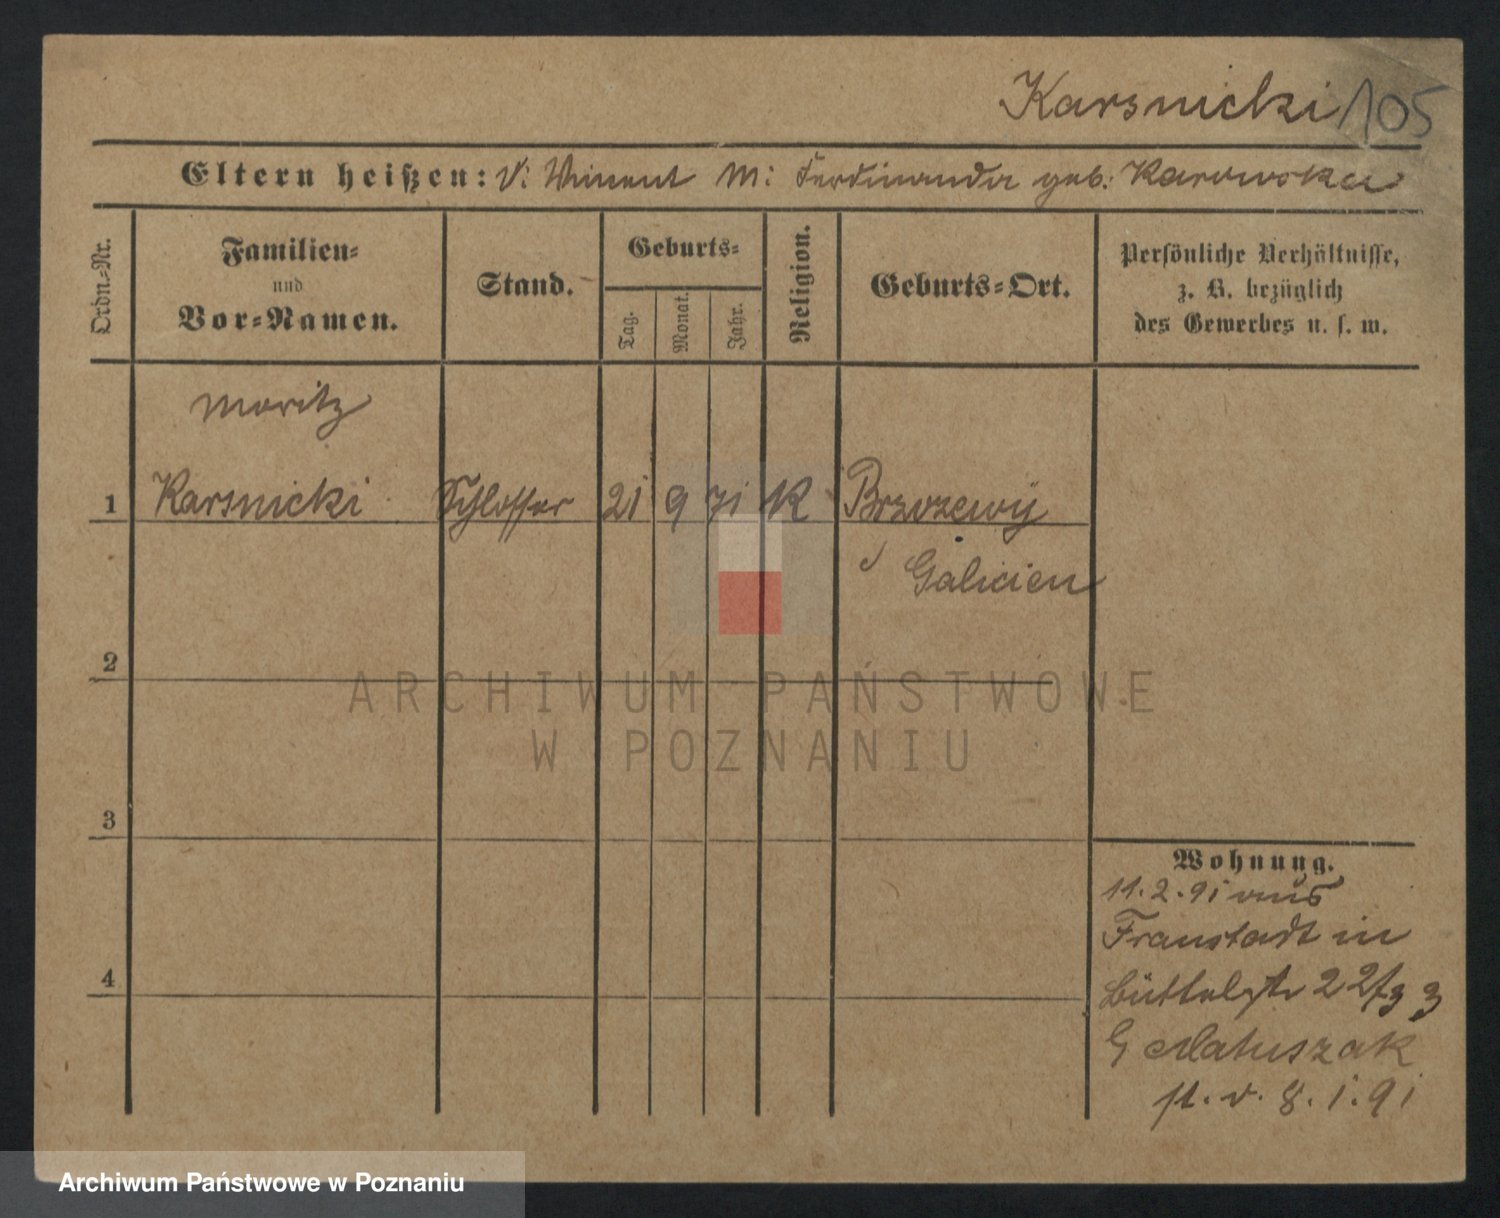 Karsnicki 105
Eltern heißen: V: Vincent M: Ferdinanda geb. Karowska
Ordn.-Nr.
Familien-
und
Vor-Namen.
Stand.
Geburts-
Tag.
Monat.
Jahr.
Religion.
Geburts-Ort.
Persönliche Verhältnisse,
z. B. bezüglich
des Gewerbes u. s. w.
Moritz
1 Karsnicki Schlosser 21 9 71 K
Galicien
2
ARCHIWUM PAŃSTWOWE
W POZNANIU
3
Wohnung.
11.2.91 aus
Fraustadt in
Büttelstr 22
Matuszak
8.1.91
4
Archiwum Państwowe w Poznaniu